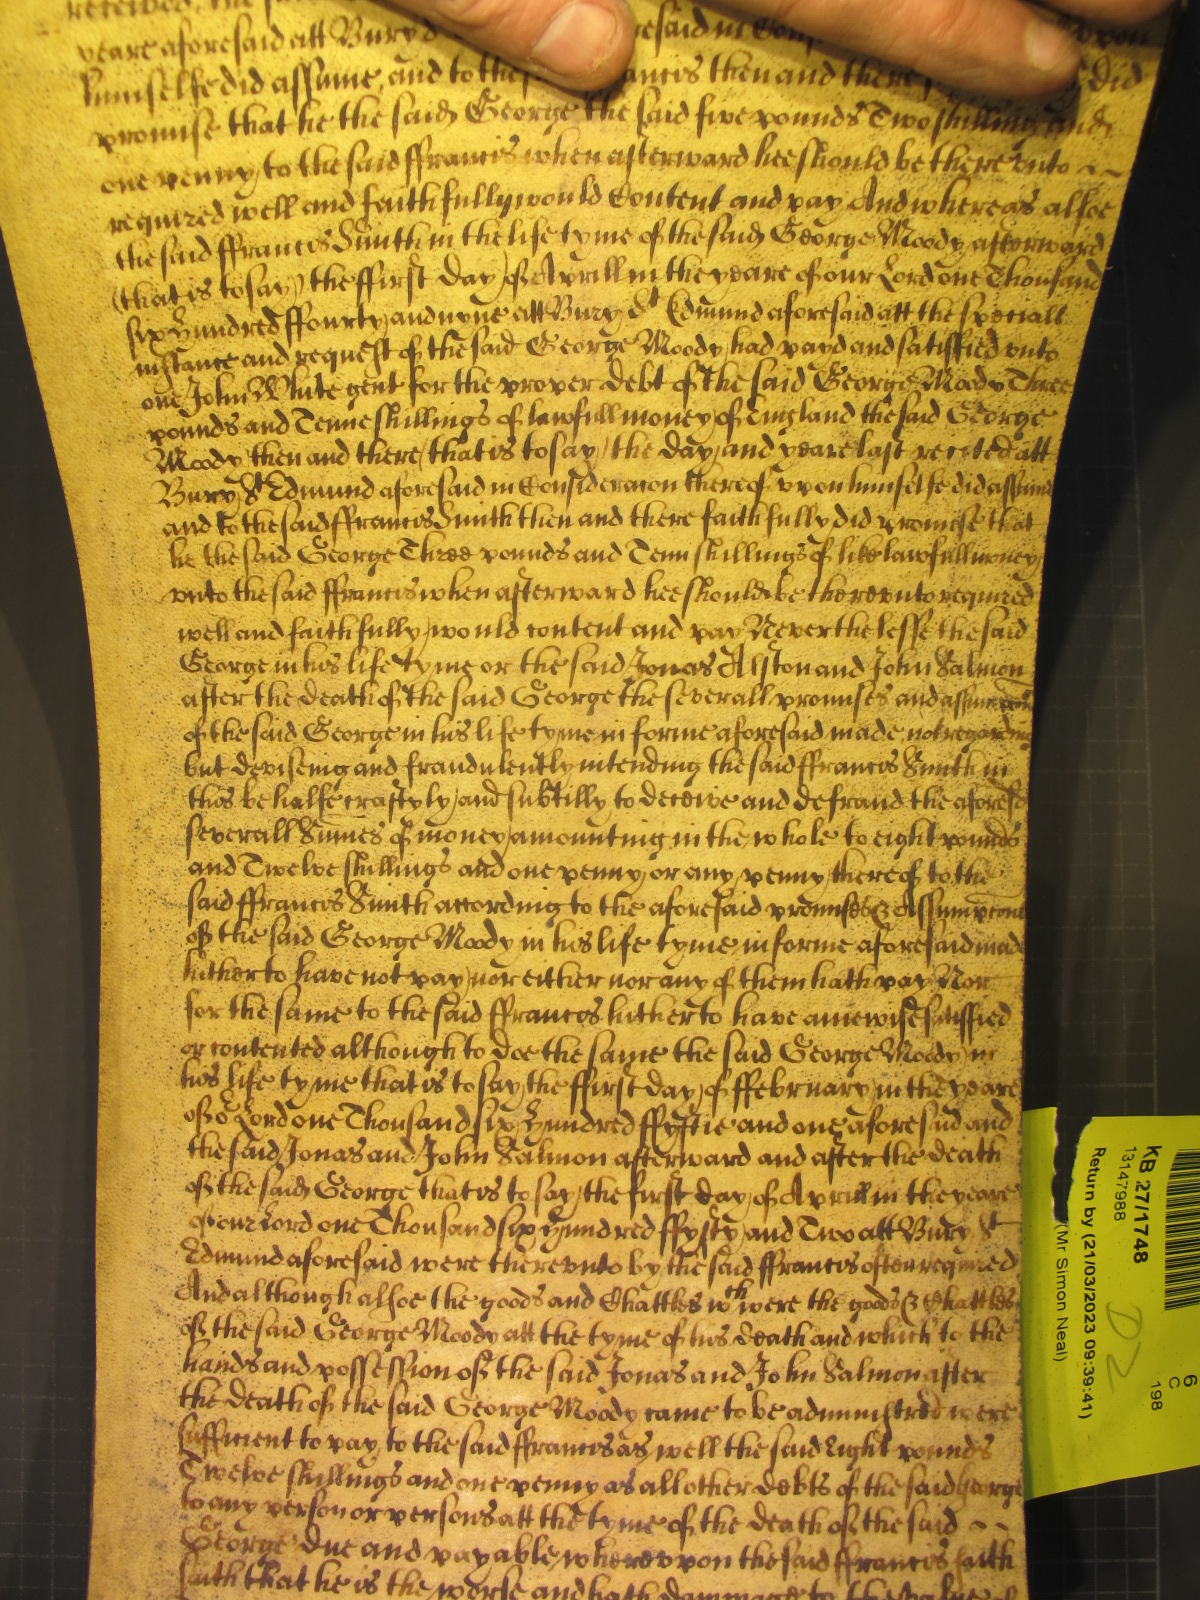 received, the said
yeare aforesaid att Bury St esaid in Cons upon
himselfe did assume, and to the said ffrancis then and there did
promise that he the said George the said five pounds Two shillings and
one penny to the said ffrancis when afterward hee should be there vnto
required well and faithfully would Content and pay And whereas alsoe
the said ffrancis Smith in the life tyme of the said George Moody afterward
(that is to say) the ffirst day of Aprill in the yeare of our Lord one Thousand
six hundred ffourty and nyne att Bury St Edmund aforesaid att the speciall
instance and request of the said George Moody had payd and satisfied vnto
one John White gent for the proper debt of the said George Moody Three
pounds and Tenne shillings of lawfull money of England the said George
Moody then and there that is to say the day and yeare last recited att
Bury St Edmund aforesaid in Consideracion thereof vpon himselfe did assume
and to the said ffrancis Smith then and there faithfully did promise that
he the said George Three pounds and Tenn shillings of like lawfull money
vnto the said ffrancis when afterward hee should be therevnto required
well and faithfully would content and pay Neverthelesse the said
George in his life tyme or the said Jonas Alston and John Salmon
after the death of the said George the severall promises and assumpcons
of the said George in his life tyme in forme aforesaid made not regarding
but deviseing and fraudulently intending the said ffrancis Smith in
this behalfe craftyly and subtilly to deceive and defraud the aforesd
severall Summes of money amounting in the whole to eight pounds
and Twelve shillings and one penny or any penny thereof to the
said ffrancis Smith according to the aforesaid promises & Assumpcons
of the said George Moody in his life tyme in forme aforesaid made
hitherto have not pay nor either nor any of them hath pay Nor
for the same to the said ffrancis hitherto have anie wise satisfied
or contented although to doe the same the said George Moody in
his life tyme that is to say the ffirst day of ffebruary in the yeare
of or Lord one Thousand six hundred ffyftie and one aforesaid and
the said Jonas and John Salmon afterward and after the death
of the said George that is to say the first day of Aprill in the yeare
of our Lord one Thousand six hundred ffyfty and Two att Bury St
Edmund aforesaid were therevnto by the said ffrancis often required
And although alsoe the goods and Chattles wth were the goods & Chattles
of the said George Moody att the tyme of his death and which to the
hands and possession of the said Jonas and John Salmon after
the death of the said George Moody came to be administred were
sufficient to pay to the said ffrancis as well the said Eight pounds
Twelve shillings and one penny as all other debts of the said George
to any person or persons att the tyme of the death of the said
George due and payable wherevpon the said ffrancis saith
saith that he is the worse and hath dammage to the value of
KB 27/1748
13147988
Return by (21/03/2023 09:39:41)
(Mr Simon Neal)
D2
6
C
198